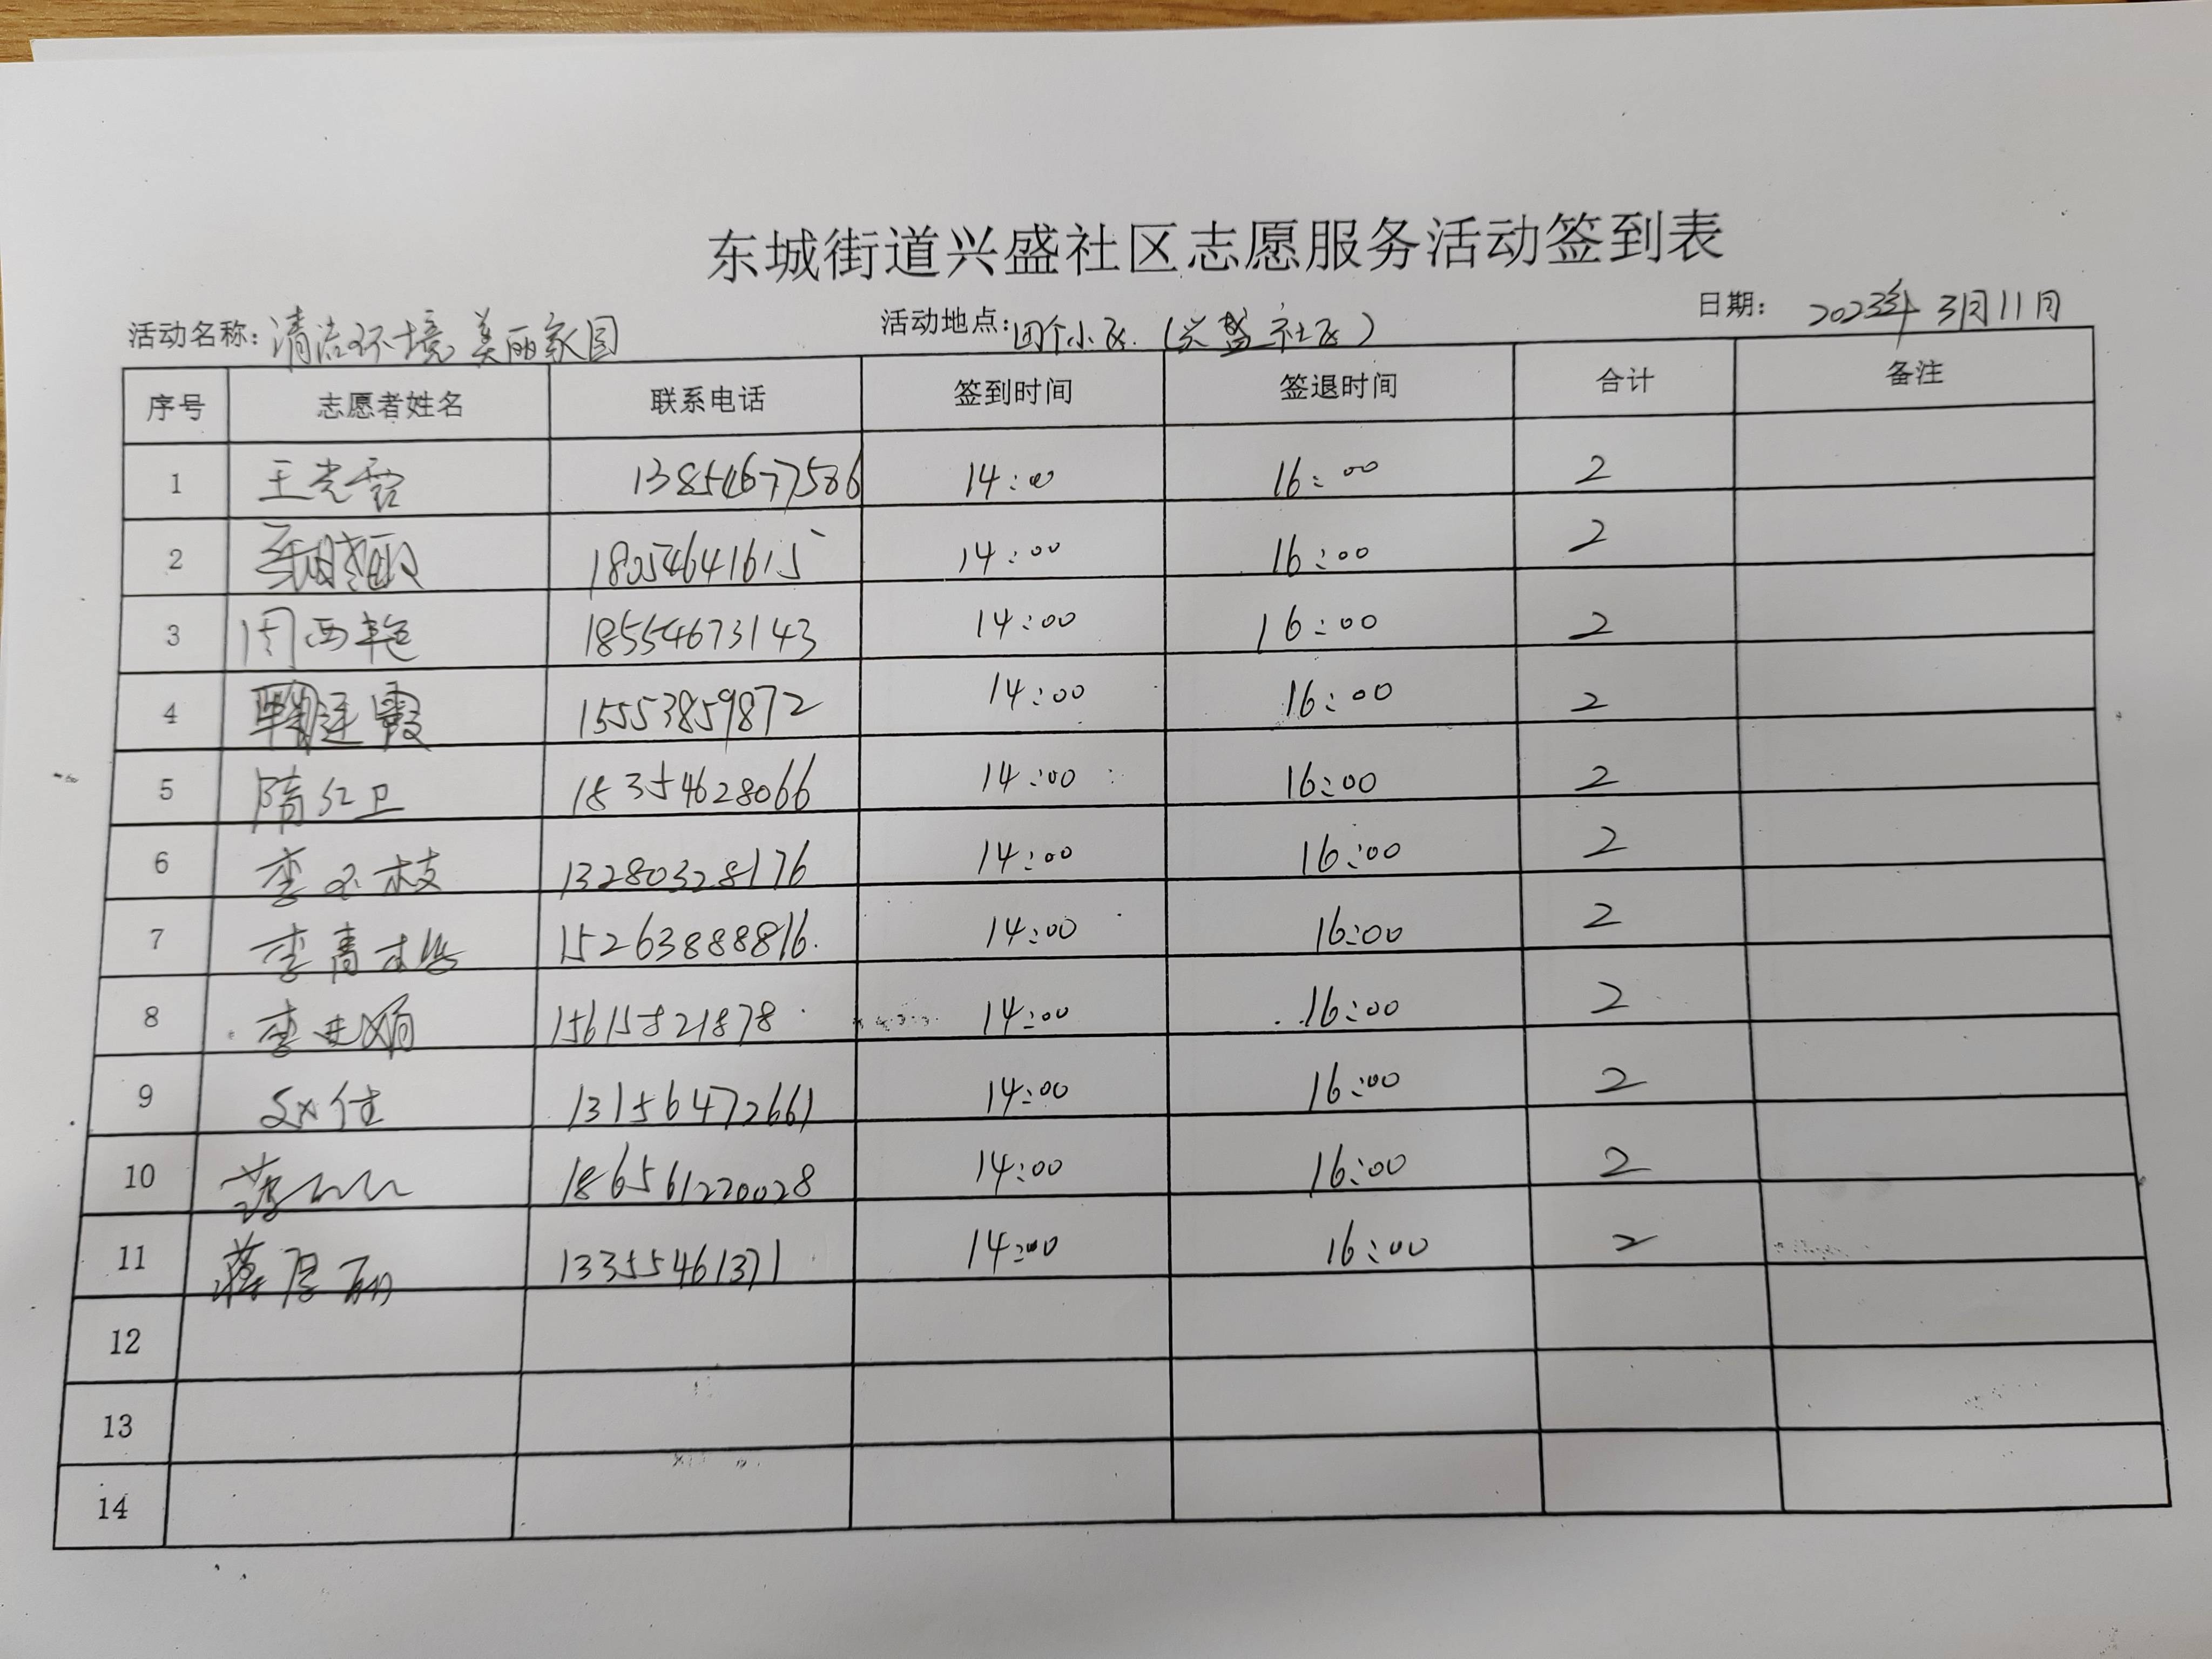 东城街道兴盛社区志愿服务活动签到表
活动名称: 清洁环境 美丽家园 活动地点: 四个小区 (兴盛社区) 日期: 2023年3月11日
序号 志愿者姓名 联系电话 签到时间 签退时间 合计 备注
1 13854677586 14:00 16:00 2
2 18054641615 14:00 16:00 2
3 周西艳 18554673143 14:00 16:00 2
4 鞠廷霞 15553859872 14:00 16:00 2
5 隋红卫 18354628066 14:00 16:00 2
6 李 枝 13280328176 14:00 16:00 2
7 李青 15263888816 14:00 16:00 2
8 李 娟 15615821878 14:00 16:00 2
9 赵佳 13156472661 14:00 16:00 2
10 14:00 16:00 2
11 13355461371 14:00 16:00 2
12
13
14